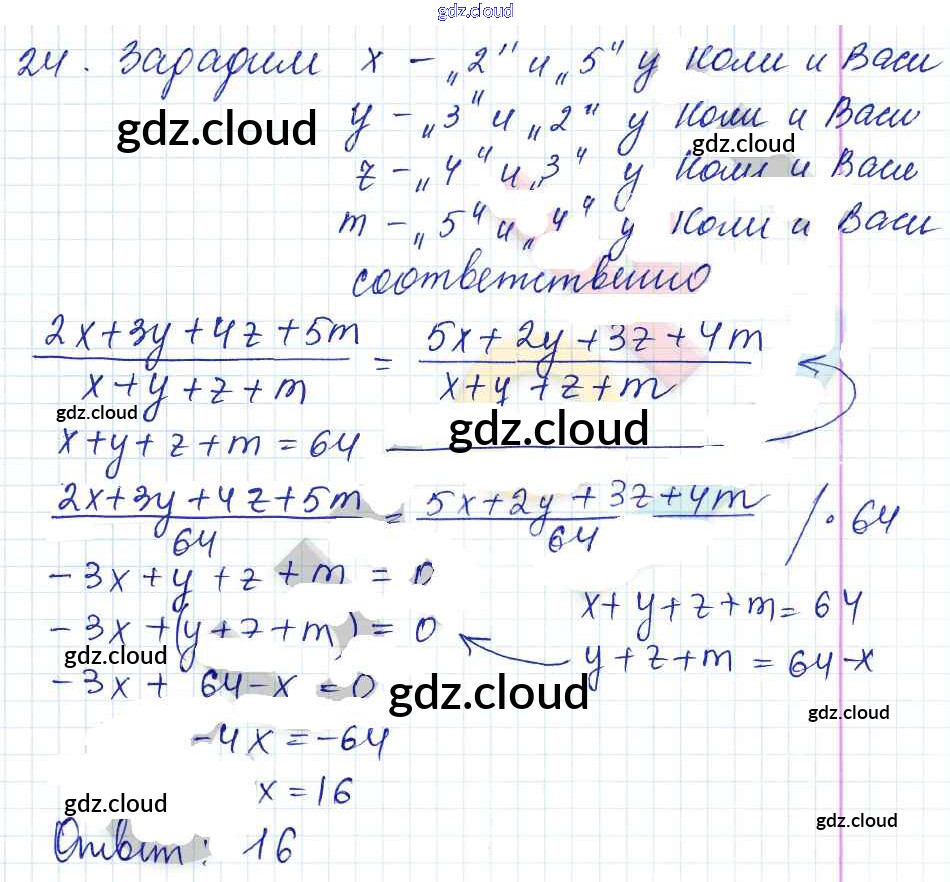 gdz.cloud
24. Зададим x - „2" и „5" у Коли и Васи
y - „3" и „2" у Коли и Васи
gdz.cloud
gdz.cloud
z - „4" и „3" у Коли и Васи
m - „5" и „4" у Коли и Васи
соответственно
2x+3y+4z+5m / x+y+z+m = 5x+2y+3z+4m / x+y+z+m
gdz.cloud
gdz.cloud
x+y+z+m = 64
2x+3y+4z+5m / 64 = 5x+2y+3z+4m / 64 / · 64
-3x+y+z+m = 0
x+y+z+m = 64
-3x+(y+z+m) = 0
y+z+m = 64-x
gdz.cloud
-3x+ 64-x = 0
gdz.cloud
gdz.cloud
-4x = -64
x = 16
gdz.cloud
gdz.cloud
Ответ: 16